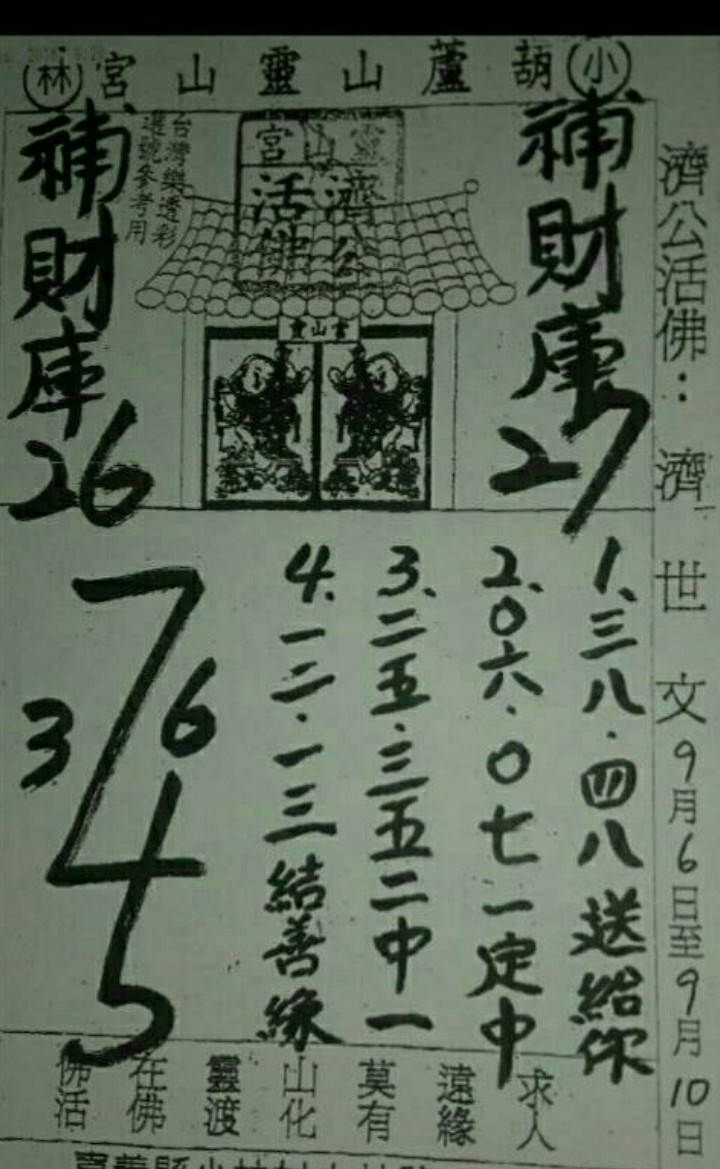 小 葫蘆山靈山宮 林
濟公活佛：濟世文 9月6日至9月10日
補財庫 27
靈山宮
濟公
活佛
台灣樂透彩
選號參考用
補財庫 26
靈山宮
1、三八·四八送給你
2、0六·0七一定中
3、二五·三五二中一
4、一二·一三結善緣
7
3 6
4
5
求人
遠緣
莫有
山化
靈渡
在佛
佛活